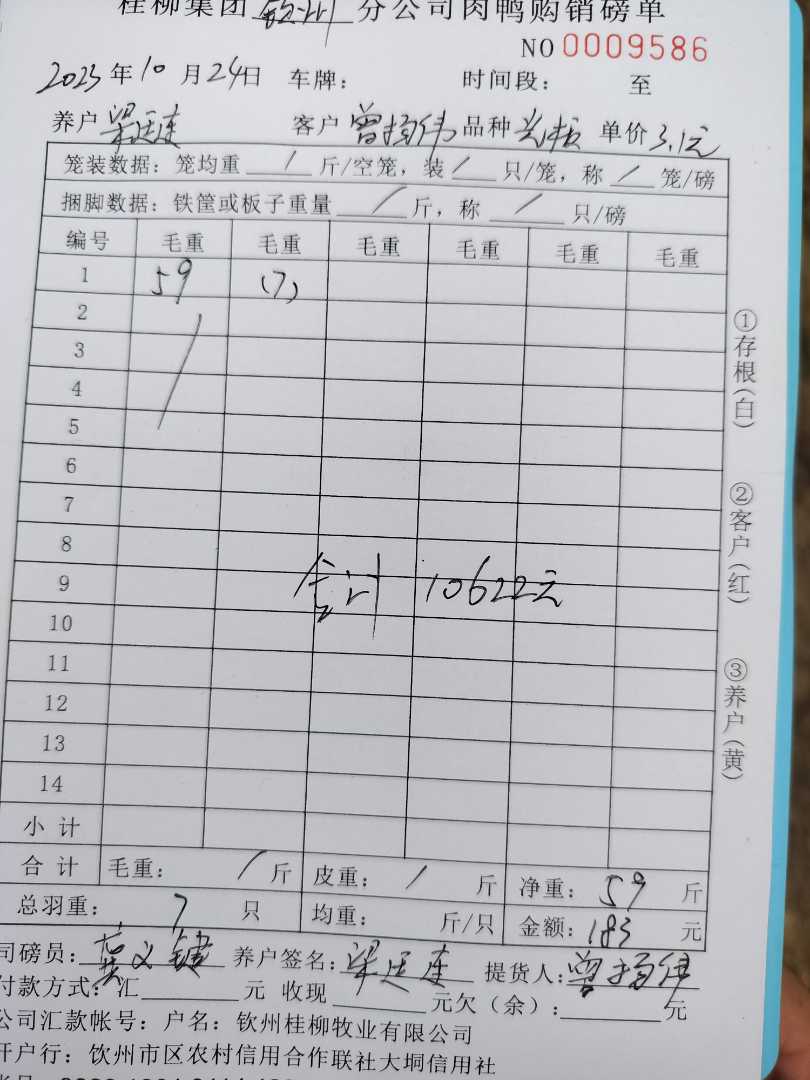 桂柳集团 钦州 分公司肉鸭购销磅单
NO 0009586
2023年10月24日 车牌： 时间段： 至
养户 梁廷连 客户 曾扬伟 品种 单价 3.1元
笼装数据：笼均重 / 斤/空笼，装 / 只/笼，称 / 笼/磅
捆脚数据：铁筐或板子重量 / 斤，称 / 只/磅
编号 毛重 毛重 毛重 毛重 毛重 毛重
1 59 (7)
2
3
4
5
6
7
8
9
合计 10622元
10
11
12
13
14
小计
合计 毛重： / 斤 皮重： / 斤 净重： 59 斤
总羽重： 7 只 均重： 斤/只 金额： 183 元
司磅员： 养户签名： 梁廷连 提货人： 曾扬伟
付款方式：汇 元 收现 元欠（余）： 元
公司汇款帐号：户名：钦州桂柳牧业有限公司
开户行：钦州市区农村信用合作联社大垌信用社
①存根（白）
②客户（红）
③养户（黄）